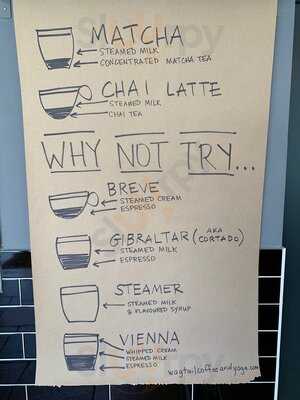 MATCHA
STEAMED MILK
CONCENTRATED MATCHA TEA
CHAI LATTE
STEAMED MILK
CHAI TEA
WHY NOT TRY...
BREVE
STEAMED CREAM
ESPRESSO
GIBRALTAR (AKA CORTADO)
STEAMED MILK
ESPRESSO
STEAMER
STEAMED MILK
& FLAVOURED SYRUP
VIENNA
WHIPPED CREAM
STEAMED MILK
ESPRESSO
wagtailcoffeeandyoga.com